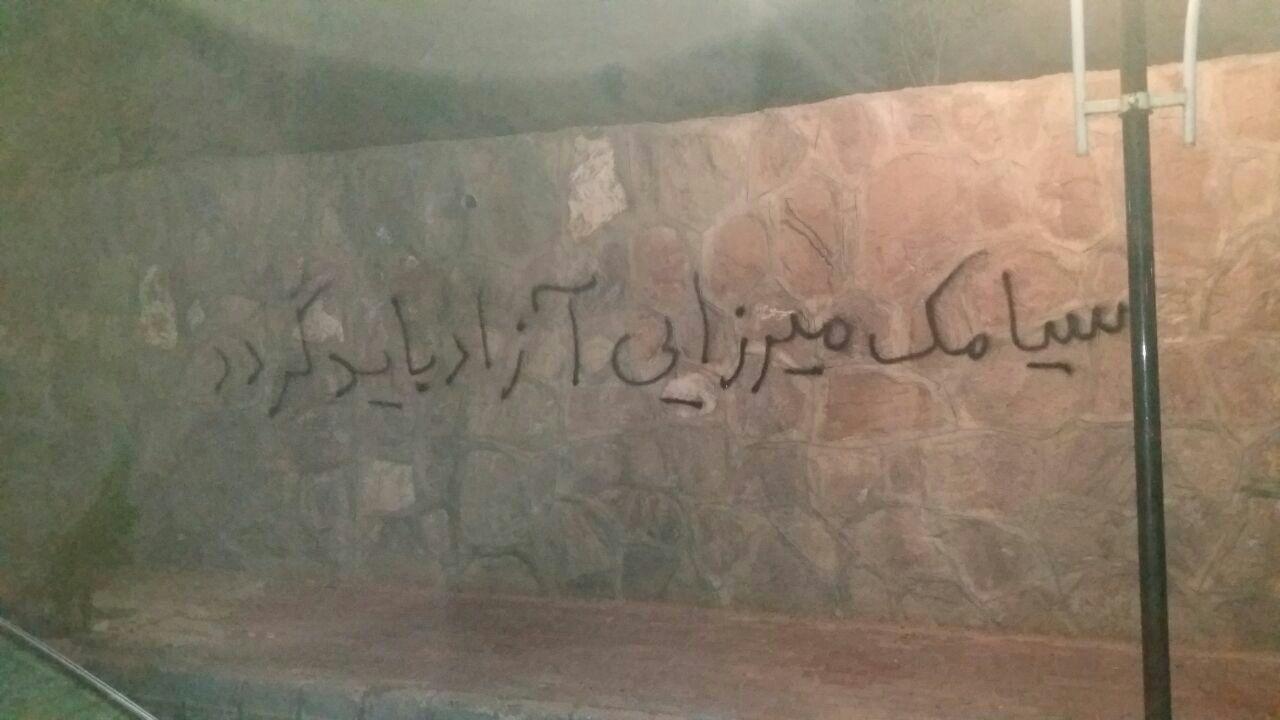 سیامک میرزایی آزاد باید گردد